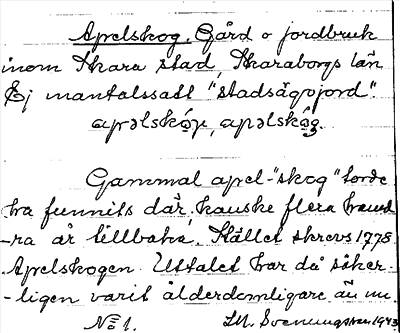 Apelskog. Gård o jordbruk
inom Skara stad, Skaraborgs län
Ej mantalssatt "stadsägojord".
apəlskóɡ, apəlskóɡ.
Gammal apel-"skog" torde
ha funnits där, kanske flera hund-
-ra år tillbaka. Stället skrevs 1778
Apelskogen. Uttalet har då säker-
-ligen varit ålderdomligare än nu.
No 1.